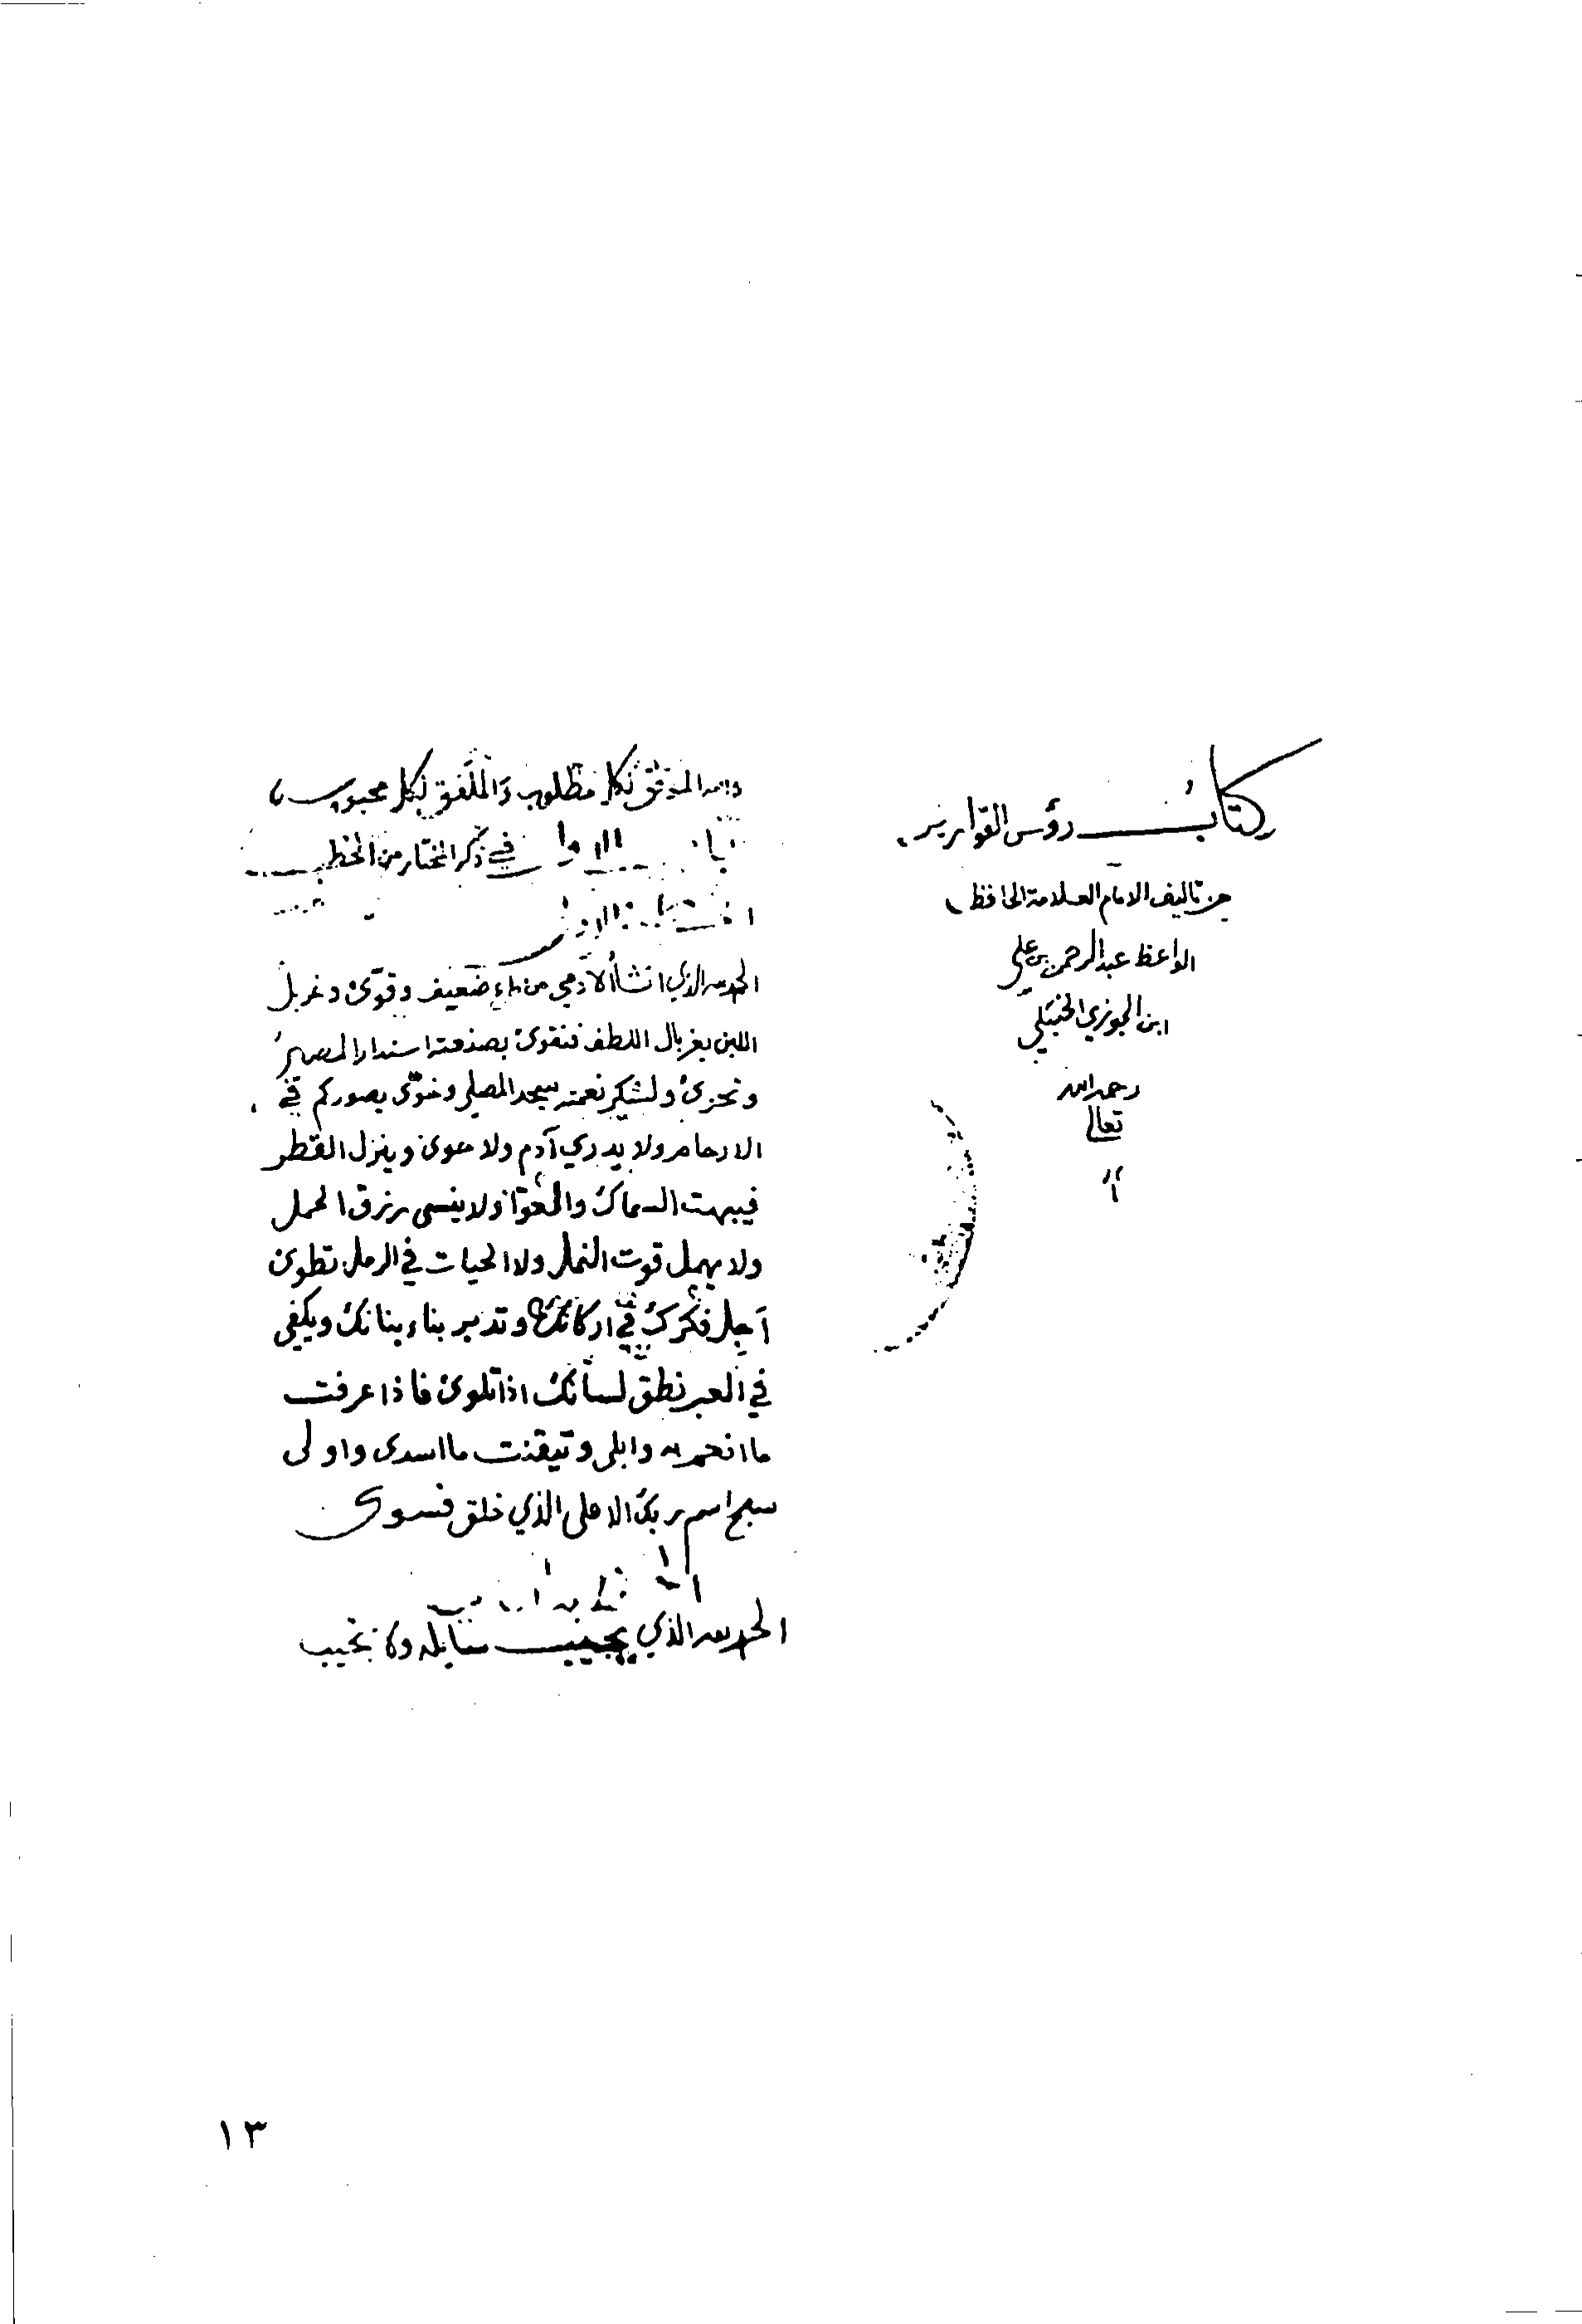 كتاب رؤس القوارير
من تاليف الامام العلامة الحافظ
الواعظ عبد الرحمن بن علي
ابن الجوزي الحنبلي
رحمه الله
تعالى
والله الموفق لكل مطلوب والملفق لكل محبوب
في ذكر المختار من الخطب
الحمد لله الذي انشأ الادمي من ماء ضعيف وقوى وغربل
اللبن بغربال اللطف فتقوى بصنعته
ولشكر نعمته سجد المصلي يصوركم في
الارحام ولا يدري آدم ولا حوى وينزل القطر
فيبهت السماك والعوا ولا ينسى رزق الحمل
ولا يهمل قوت النمل ولا الحيات في الرمل تطوى
أجل فكرك في اركانك وتدبر بناء بنانك ويكفي
في العبر نطق لسانك اذا تلوى فاذا عرفت
ما انعم به وابلى وتيقنت ما اسدى واولى
سبح اسم ربك الاعلى الذي خلق فسوى
الحمد لله الذي يجيب سايله
١٣